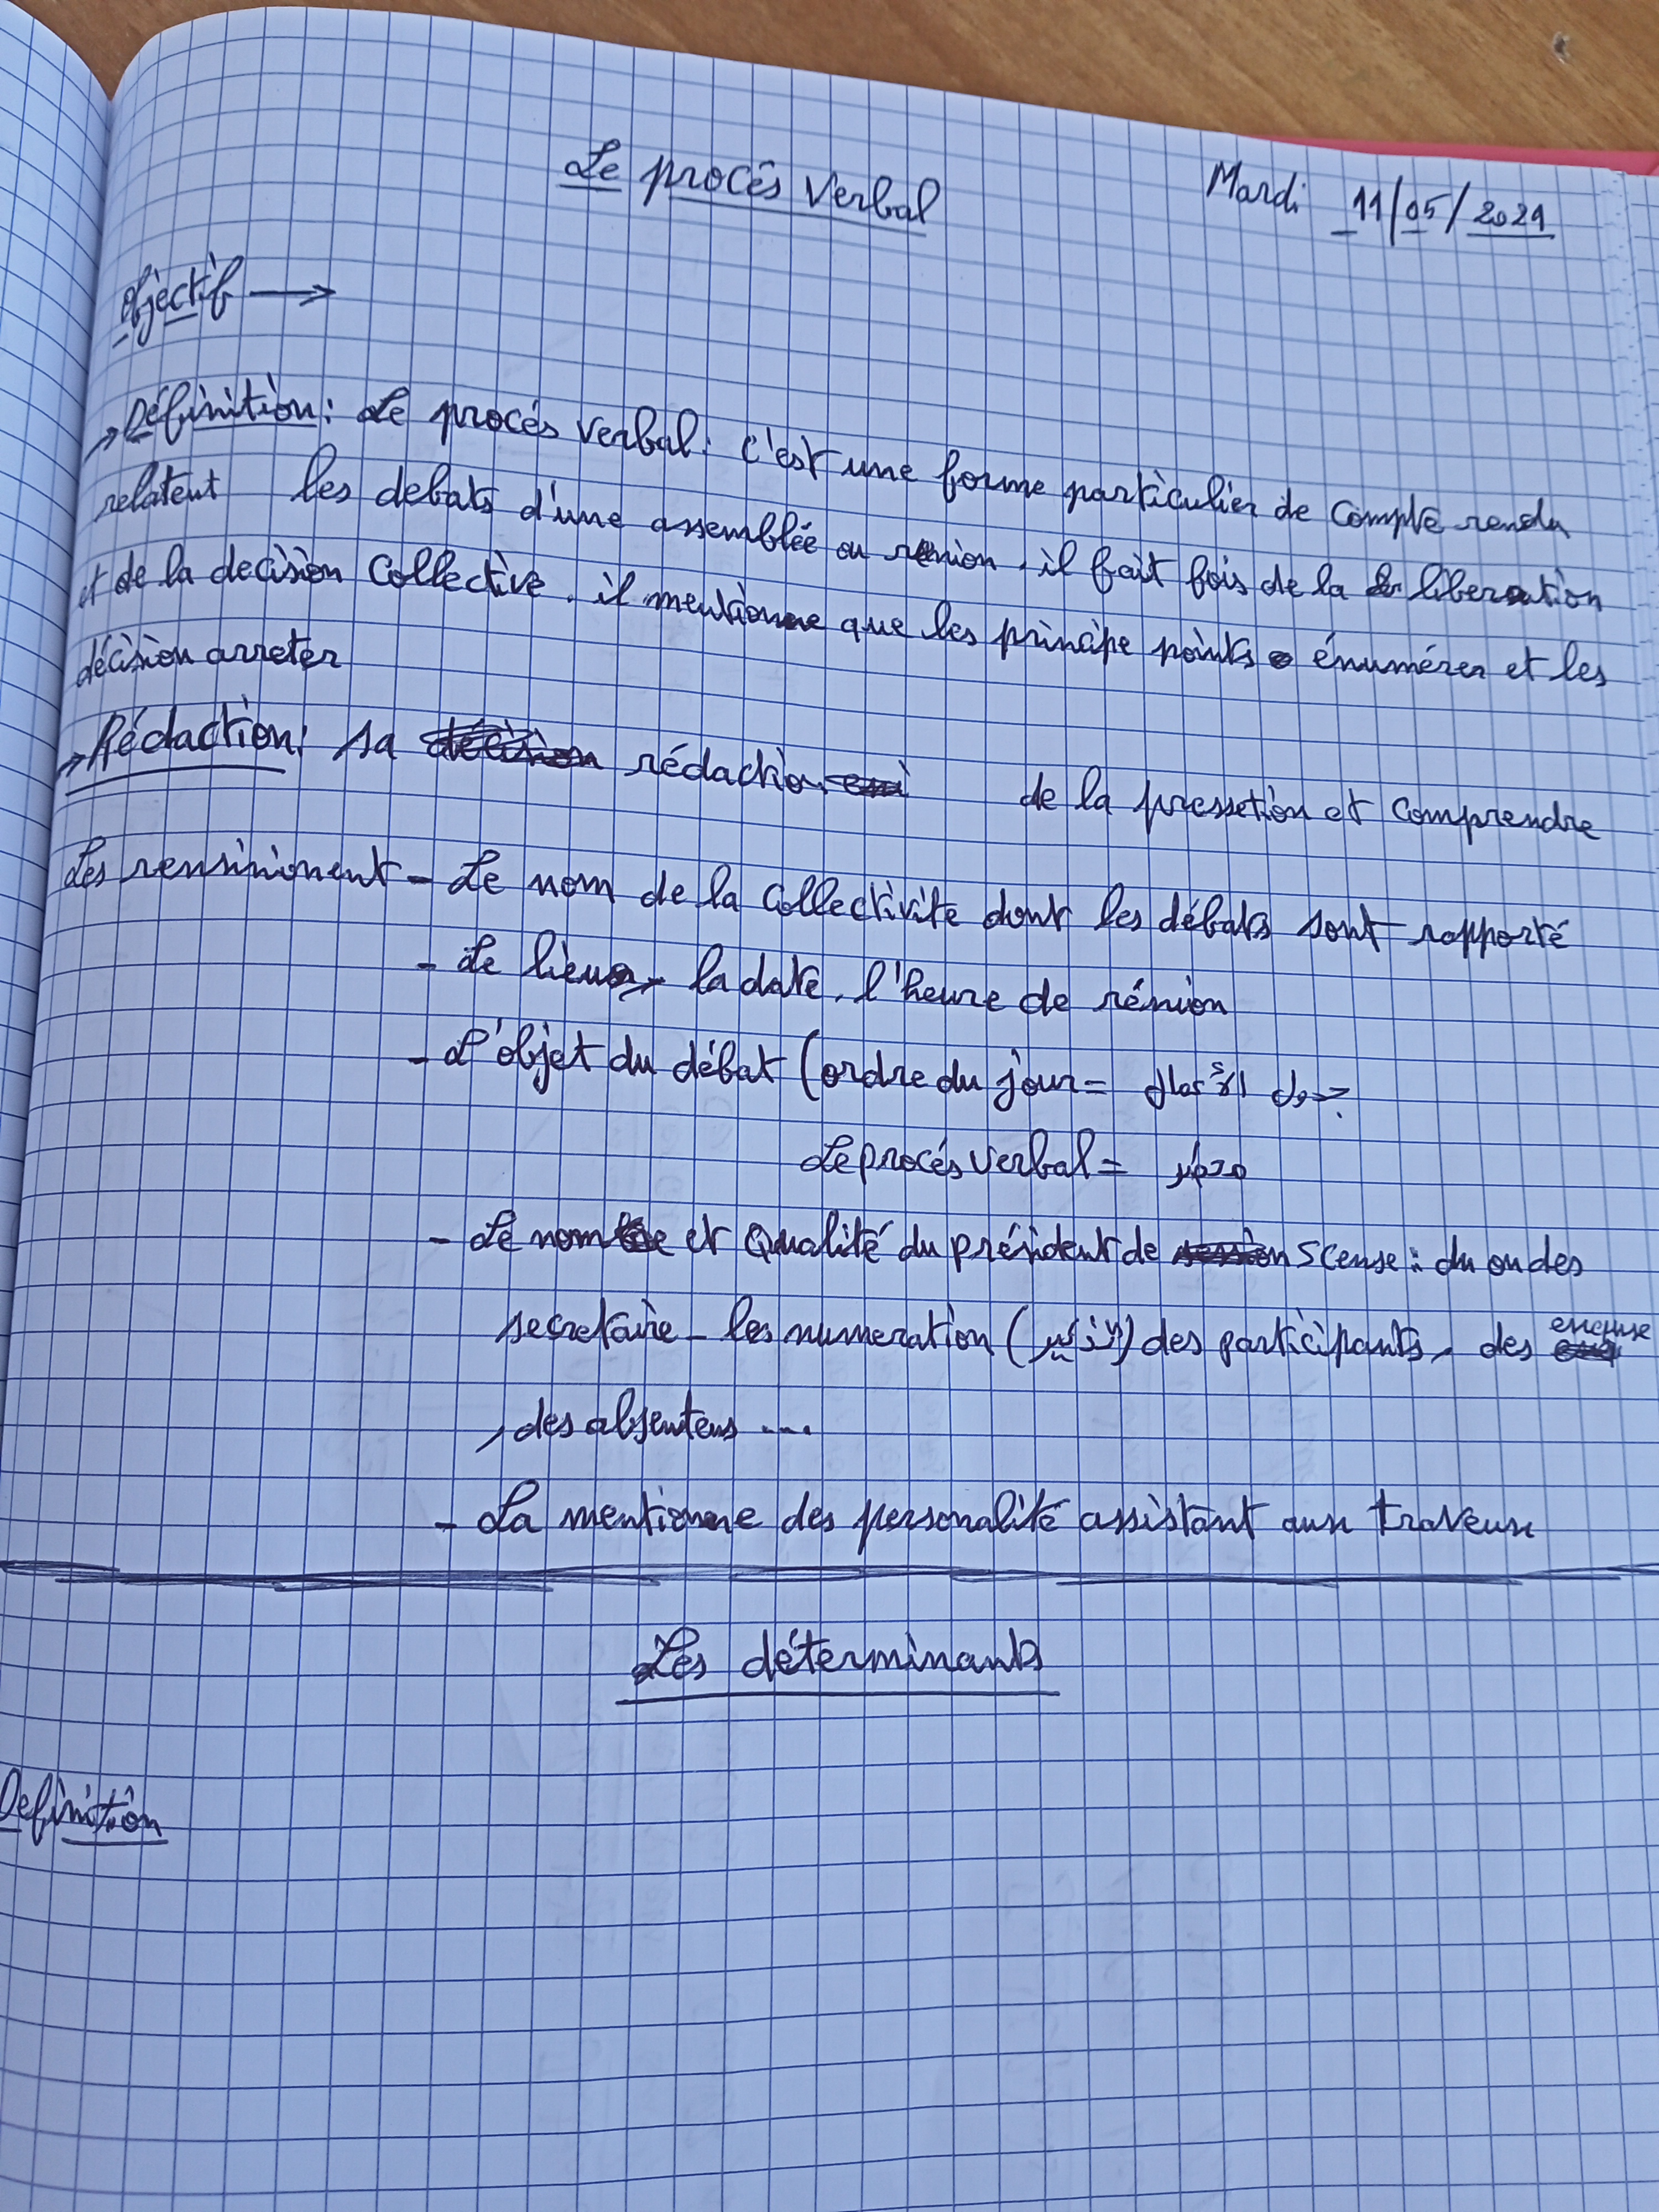 Le procés verbal
Mardi 11/05/2021
Objectif →
→ Définition : Le procés verbal : c'est une forme particulier de compte rendu
relatent les debats d'une assemblée ou rénion . il fait fois de la liberation
et de la decision collective . il mentionne que les principe points énumérer et les
décision arreter
→ Rédaction : sa rédaction de la pressetion et comprendre
Les rensinionent - Le nom de la collectivite dont les débats sont rapporté
- Le lieu , la date , l'heure de rénion
- L'objet du débat (ordre du jour = جدول الأعمال
Le procés verbal = محضر
- Le nom et Qualité du président de scense : du ou des
secretaire - les numeration () des participants , des excuse
, des absentens ....
- La mentionne des personalité assistant aux traveux
Les déterminants
Definition